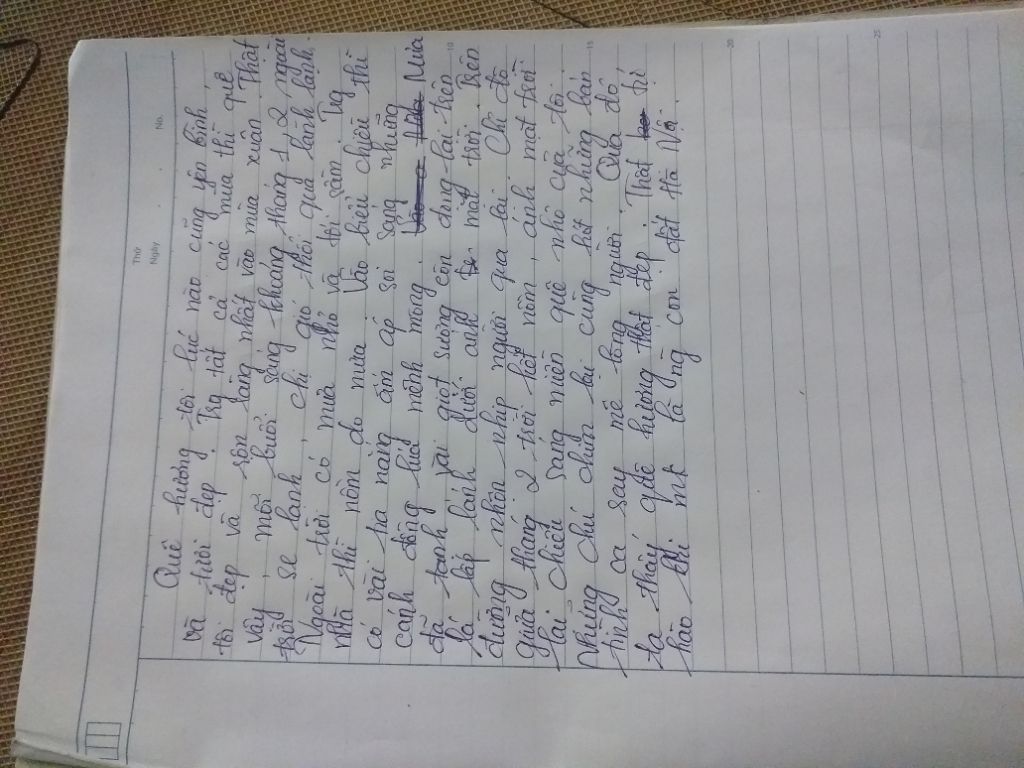 Thứ
Ngày
No.
Quê hương tôi lúc nào cũng yên bình
và tươi đẹp. Trg tất cả các mùa thì quê
tôi đẹp và rộn ràng nhất vào mùa xuân. Thật
vậy, mỗi buổi sáng khoảng tháng 1, 2 ngoài
trời se lạnh, chỉ gió thôi qua lành lạnh.
Ngoài trời có mưa nhỏ và tối sầm. Trg
nhà thì nồm do mưa. Vào biểu chiều thì
có vài tia nắng ấm áp soi sáng những
cánh đồng lúa mênh mông. Mùa
đã xanh rồi giọt sương còn đung lai trên
lá lấp lánh dưới ánh mặt trời. Trên
đường nhộn nhịp người qua lại. Chỉ đó
giữa tháng 2 trời hết nồm, ánh mặt trời
lại chiếu sáng miền quê nhỏ của tôi.
Nhưng chú chim lại cùng hót những bản
tình ca say mê lòng người. Qua đó
ta thấy quê hương thật đẹp. Thật tự
hào khi mk là ng con đất Hà Nội.
10
15
20
25